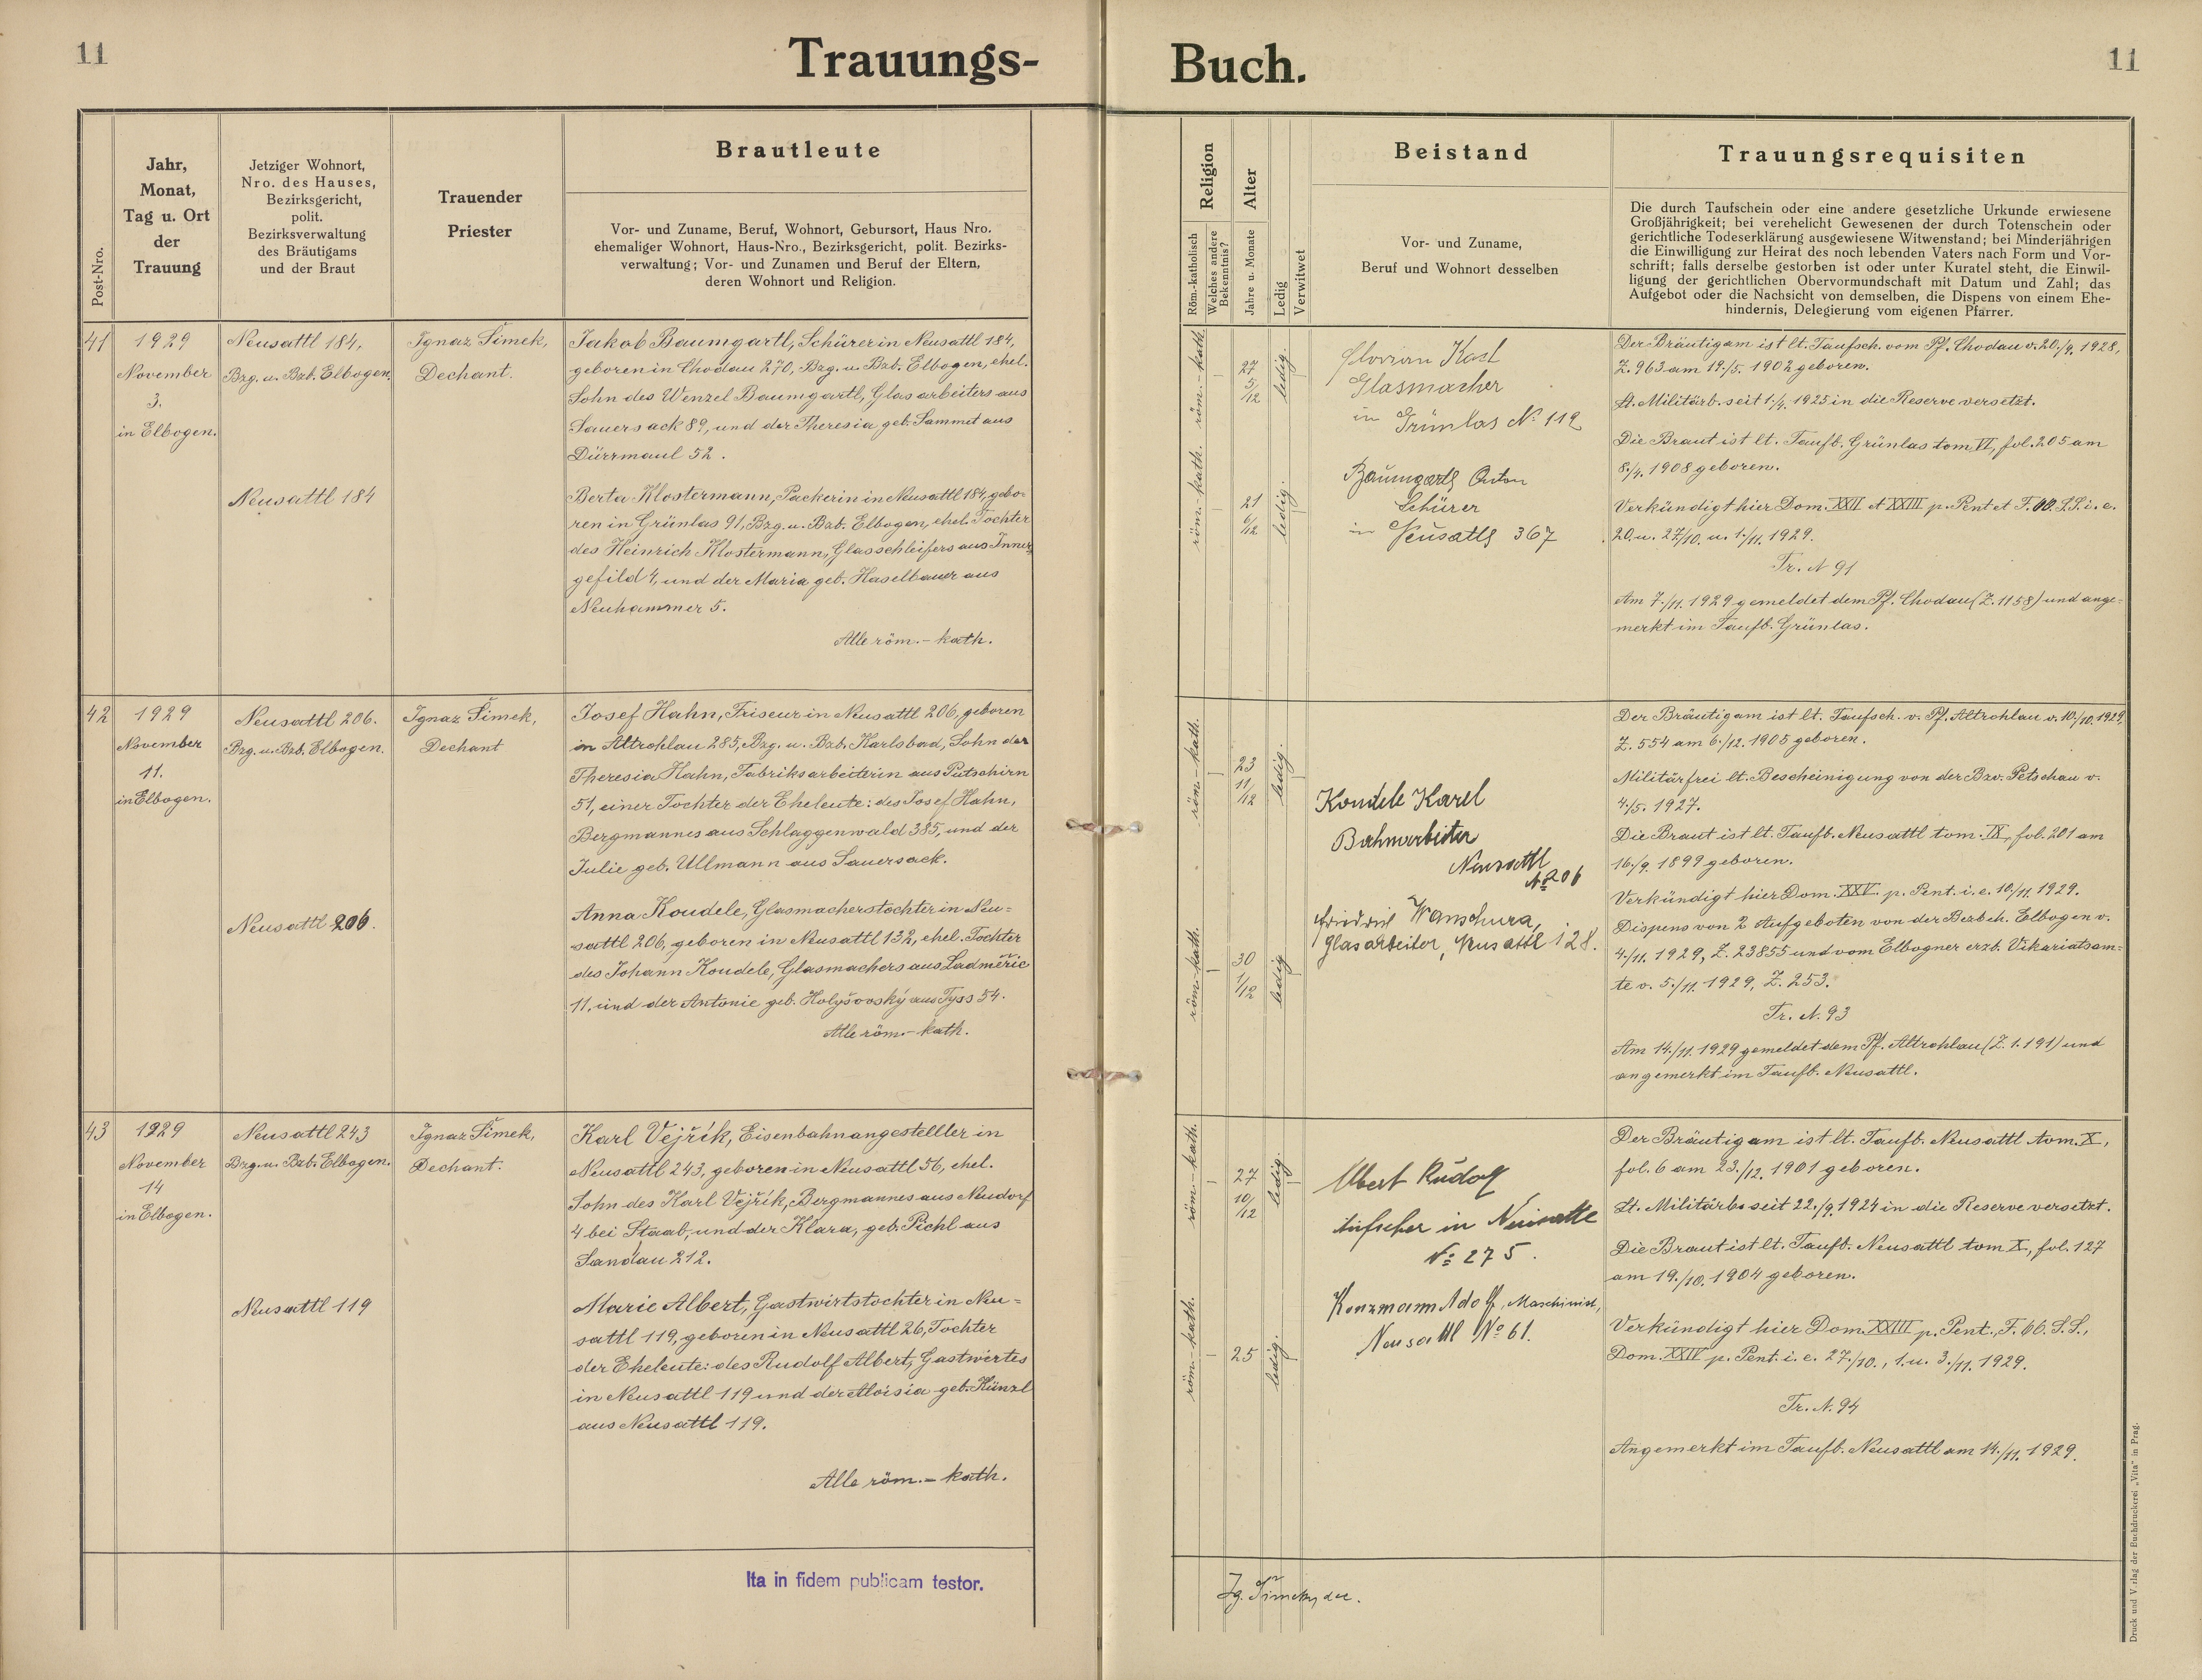 11
Trauungs-
Buch.
11
Post-Nro.
Jahr,
Monat,
Tag u. Ort
der
Trauung
Jetziger Wohnort,
Nro. des Hauses,
Bezirksgericht,
polit.
Bezirksverwaltung
des Bräutigams
und der Braut
Trauender
Priester
Brautleute
Vor- und Zuname, Beruf, Wohnort, Gebursort, Haus Nro.
ehemaliger Wohnort, Haus-Nro., Bezirksgericht, polit. Bezirks-
verwaltung; Vor- und Zunamen und Beruf der Eltern,
deren Wohnort und Religion.
Religion
Röm.-katholisch
Welches andere
Bekenntnis?
Alter
Jahre u. Monate
Ledig
Verwitwet
Beistand
Vor- und Zuname,
Beruf und Wohnort desselben
Trauungsrequisiten
Die durch Taufschein oder eine andere gesetzliche Urkunde erwiesene
Großjährigkeit; bei verehelicht Gewesenen der durch Totenschein oder
gerichtliche Todeserklärung ausgewiesene Witwenstand; bei Minderjährigen
die Einwilligung zur Heirat des noch lebenden Vaters nach Form und Vor-
schrift; falls derselbe gestorben ist oder unter Kuratel steht, die Einwil-
ligung der gerichtlichen Obervormundschaft mit Datum und Zahl; das
Aufgebot oder die Nachsicht von demselben, die Dispens von einem Ehe-
hindernis, Delegierung vom eigenen Pfarrer.
41
1929
November
3.
in Elbogen.
Neusattl 184,
Bzg. u. Bzb. Elbogen.
Neusattl 184
Ignaz Šimek,
Dechant.
Jakob Baumgartl, Schürer in Neusattl 184,
geboren in Chodau 270, Bzg. u. Bzb. Elbogen, ehel.
Sohn des Wenzel Baumgartl, Glasarbeiters aus
Sauersack 89, und der Theresia geb. Sammit aus
Dürrmaul 52.
Berta Klostermann, Packerin in Neusattl 184, gebo-
ren in Grünlas 91, Bzg. u. Bzb. Elbogen, ehel. Tochter
des Heinrich Klostermann, Glasschleifers aus Inner-
gefild 4, und der Maria geb. Haselbauer aus
Neuhammer 5.
Alle röm.-kath.
röm.-kath.
27
5/12
ledig.
röm.-kath.
21
6/12
ledig.
Florian Kasl
Glasmacher
in Grünlas № 112
Baumgartl Anton
Schürer
in Neusattl 367
Der Bräutigam ist lt. Taufsch. vom Pf. Chodau v. 20./9. 1928,
Z. 963 am 19./5. 1902 geboren.
Lt. Militärb. seit 1./4. 1925 in die Reserve versetzt.
Die Braut ist lt. Taufb. Grünlas tom. VI, fol. 205 am
8./4. 1908 geboren.
Verkündigt hier Dom. XXII et XXIII p. Pent et F. OO. SS. i. e.
20. u. 27/10. u. 1./11. 1929.
Tr. N 91
Am 7./11. 1929 gemeldet dem Pf. Chodau (Z. 1158) und ange-
merkt im Taufb. Grünlas.
42
1929
November
11.
in Elbogen.
Neusattl 206.
Bzg. u. Bzb. Elbogen.
Neusattl 206.
Ignaz Šimek,
Dechant
Josef Hahn, Friseur in Neusattl 206, geboren
in Altrohlau 285, Bzg. u. Bzb. Karlsbad, Sohn der
Theresia Hahn, Fabriksarbeiterin aus Putschirn
51, einer Tochter der Eheleute: des Josef Hahn,
Bergmannes aus Schlaggenwald 385, und der
Julie geb. Ullmann aus Sauersack.
Anna Koudele, Glasmacherstochter in Neu-
sattl 206, geboren in Neusattl 132, ehel. Tochter
des Johann Koudele, Glasmachers aus Ladměřic
11, und der Antonie geb. Holyšovský aus Tyss 54.
Alle röm.-kath.
röm.-kath.
23
11/12
ledig.
röm.-kath.
30
1/12
ledig
Koudele Karel
Bahnarbeiter
Neusattl
№ 206
Friedrich Wanschura,
Glasarbeiter, Neusattl 128.
Der Bräutigam ist lt. Taufsch. v. Pf. Altrohlau v. 10./10. 1929,
Z. 554 am 6./12. 1905 geboren.
Militärfrei lt. Bescheinigung von der Bzv. Petschau v.
4./5. 1927.
Die Braut ist lt. Taufb. Neusattl tom. IX, fol. 201 am
16./9. 1899 geboren.
Verkündigt hier Dom. XXV. p. Pent. i. e. 10./11. 1929.
Dispens von 2 Aufgeboten von der Bezbeh. Elbogen v.
4./11. 1929, Z. 23855 und vom Elbogner erzb. Vikariatsam-
te v. 5./11. 1929, Z. 253.
Tr. N. 93
Am 14./11. 1929 gemeldet dem Pf. Altrohlau (Z. 1.191) und
angemerkt im Taufb. Neusattl.
43
1929
November
14
in Elbogen.
Neusattl 243
Bzg. u. Bzb. Elbogen.
Neusattl 119
Ignaz Šimek,
Dechant.
Karl Vejřík, Eisenbahnangestellter in
Neusattl 243, geboren in Neusattl 56, ehel.
Sohn des Karl Vejřík, Bergmannes aus Neudorf
4 bei Staab, und der Klara, geb. Pichl aus
Sandau 212.
Marie Albert, Gastwirtstochter in Neu-
sattl 119, geboren in Neusattl 26, Tochter
der Eheleute: des Rudolf Albert, Gastwirtes
in Neusattl 119 und der Aloisia geb. Künzl
aus Neusattl 119.
Alle röm.-kath.
röm.-kath.
27
10/12
ledig.
röm.-kath.
25
ledig.
Albert Rudolf
Aufseher in Neusattl
№ 275.
Konzmann Adolf, Maschinist,
Neusattl № 61.
Der Bräutigam ist lt. Taufb. Neusattl tom. X,
fol. 6 am 23./12. 1901 geboren.
Lt. Militärb. seit 22./9. 1924 in die Reserve versetzt.
Die Braut ist lt. Taufb. Neusattl tom X, fol. 127
am 19./10. 1904 geboren.
Verkündigt hier Dom. XXIII p. Pent., F. OO. S.S.,
Dom. XXIV p. Pent. i. e. 27./10., 1. u. 3./11. 1929.
Tr. N. 94
Angemerkt im Taufb. Neusattl am 14./11. 1929.
Ita in fidem publicam testor.
Ig. Šimek, dec.
Druck und Verlag der Buchdruckerei „Vita" in Prag.